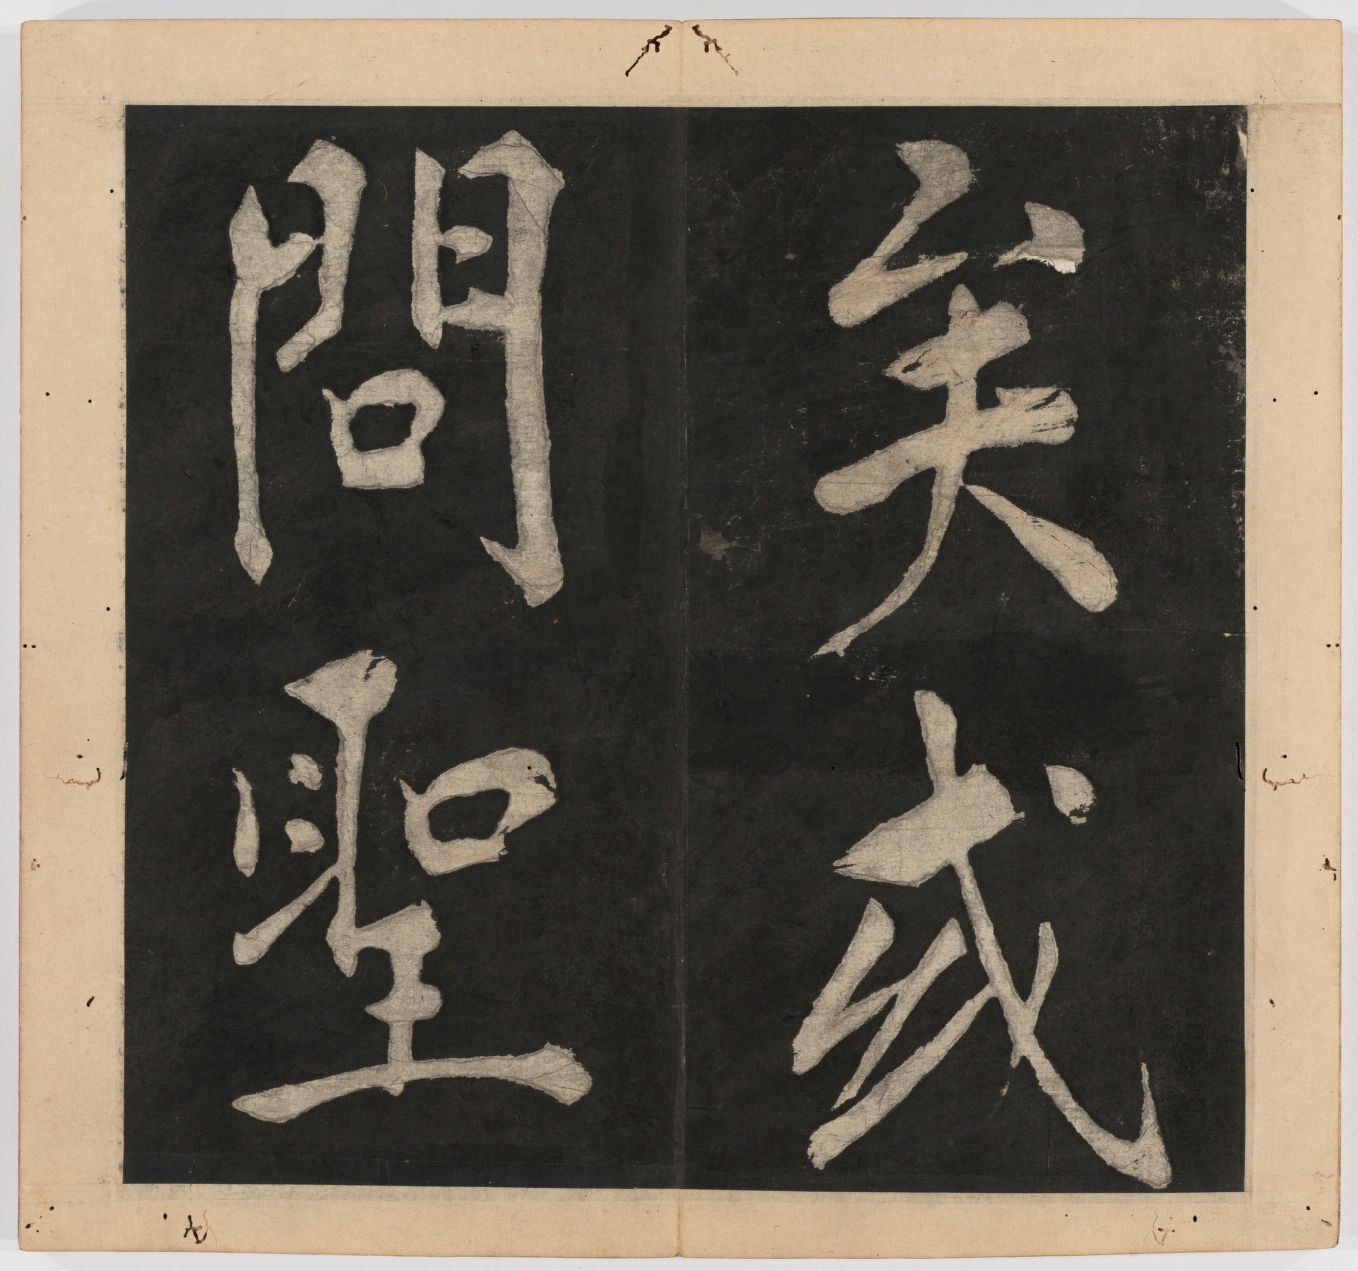 矣或
問聖